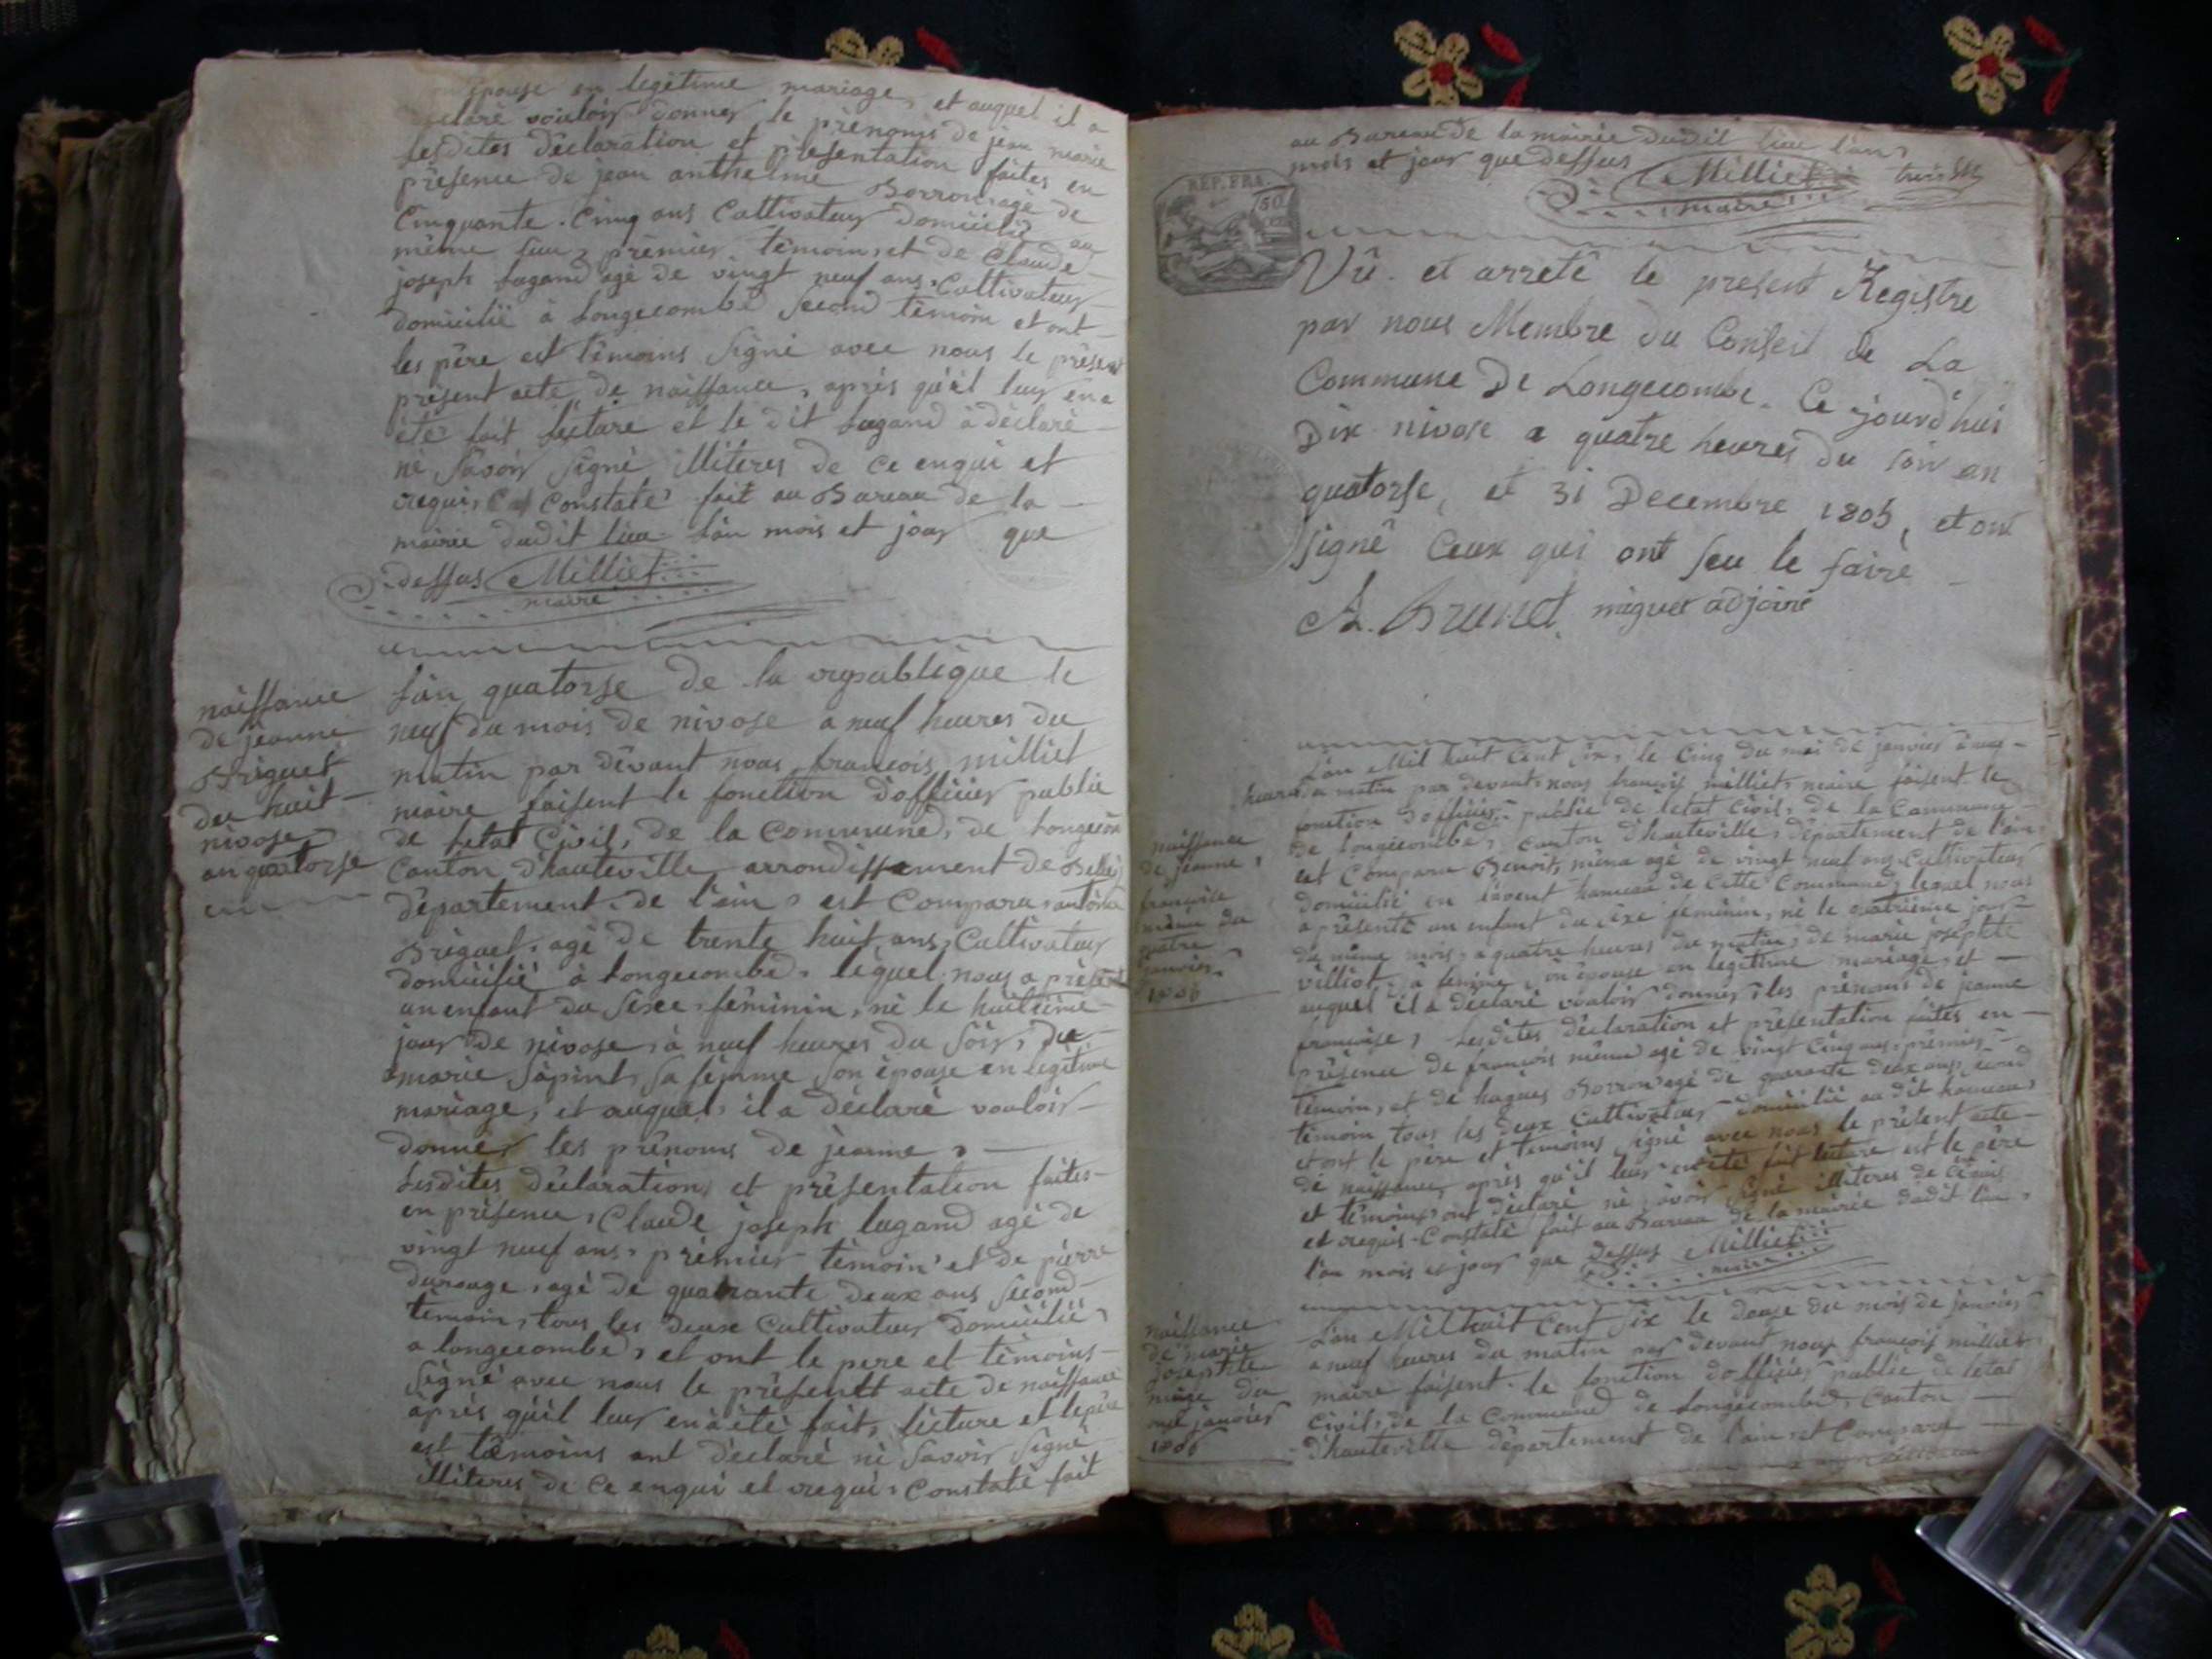 épouse en legitime mariage, et auquel il a
declaré vouloir donner le prénoms de jean marie
lesdites déclaration et présentation faites en
présence de jean anthelme Borron agé de
Cinquante-Cinq ans Cultivateur domicilié au
même lieu, premier témoin, et de Claude
joseph lugand agé de vingt neuf ans, Cultivateur
domicilié à Longecombe second témoin et ont
les père est témoins signé avec nous le présent
présent acte de naissance, après qu'il leur en a
été fait lecture et le dit lugand à déclaré
ne savoir signé illiteres de ce enqui et
requi, Constaté fait au Bureau de la
mairie dudit lieu l'an mois et jour que
dessus Milliet
maire
naissance
de jeanne
Briguet
du huit
nivose
an quatorse
L'an quatorse de la republique le
neuf du mois de nivose a neuf heures du
matin par dévant nous françois milliet
maire faisent le fonction d'officier public
de letat Civil, de la Commune, de Longecombe
Canton d'hauteville arrondissement de Belley
département de l'ain, est Comparu
Briguet, agé de trente huit ans, Cultivateur
domicilié à Longecombe, lequel nous a présenté
un enfant du sexe féminin, né le huitième
jour de nivose, à neuf heures du soir, de
marie sapint, sa femme son épouse en legitime
mariage, et auquel, il a déclaré vouloir
donner les prénoms de jeanne,
Lesdites déclaration et présentation faites
en présence, Claude joseph lugand agé de
vingt neuf ans, prémier témoin et de pierre
durouge, agé de quatrante deux ans second
témoin, tous les deux Cultivateur domicilié
a longecombe, et ont le pere et témoins
signé avec nous le présentt acte de naissance
après qu'il leur en à été fait, lécture et le père
est témoins ont déclaré né savoir signé
illiteres de ce enqui et requi, Constaté fait
au Bureau de la mairie dudit lieu l'an,
mois et jour que dessus Milliet
maire
REP. FRA.
50
Vû et arreté le present Registre
par nous Membre du Conseil de La
Commune De Longecombe. Ce jourd'hui
Dix nivose a quatre heures du soir an
quatorse, et 31 Decembre 1805, et ont
signé Ceux qui ont seu le faire
A. Brunet miguet adjoint
naissance
de jeanne,
françoise
du
quatre
janvier
1806
L'an Mil huit Cent six, le Cinq du moi de janvier à neuf
heures du matin par devant nous françois milliet maire faisent le
fonction d'officier public de letat Civil, de la Commune
de Longecombe, Canton d'hauteville, département de l'ain,
est Comparu Benoit agé de vingt neuf ans Cultivateur
domicilié en hameau de Cette Commune, lequel nous
a présenté un enfant du sexe feminin, né le quatrieme jour
du même mois, a quatre heures du matin, de marie joseptte
sa femme, son épouse en legitime mariage, et
auquel il a déclaré vouloir donner, les prénoms de jeanne
françoise, Lesdites déclaration et présentation faites en
présence de françois agé de vingt Cinq ans, prémier
témoin, et de hugues Borron agé de quarante deux ans, second
témoin tous les deux Cultivateur domicilié au dit hameau,
et ont le père et témoins signé avec nous le présent acte
de naissance, après qu'il leur en été fait lecture est le père
et témoins ont déclaré né savoir signé illiteres de
et requis Constaté fait au Bureau de la mairie dudit lieu,
l'an mois et jour que dessus Milliet
maire
naissance
de marie
joseptte
du
onze janvier
1806
L'an Mil huit Cent six le douse du mois de janvier
a neuf heures du matin par devant nous françois milliet
maire faisent le fonction d'officier public de letat
Civil, de la Commune de Longecombe, Canton
d'hauteville département de l'ain, est Comparu